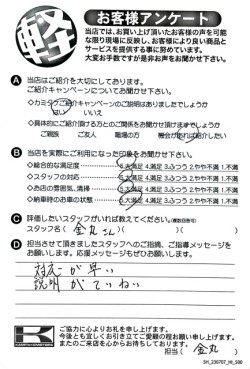 軽
お客様アンケート
当店では、お買い上げ頂いたお客様の声を可能
な限り現場に反映し、お客様により良い商品と
サービスを提供する事に努めています。
大変お手数ですが是非お声をお聞かせ下さい。
A 当店はご紹介を大切にしております。
ご紹介キャンペーンについてお聞かせ下さい。
◇カミタケご紹介キャンペーンのご説明はありましたでしょうか
はい いいえ
◇具体的にご紹介頂ける方とのご関係をお聞かせ頂けますでしょうか
ご親族 ご友人 職場の方 機会があれば紹介したい
B 当店を実際にご利用になった印象をお聞かせ下さい。
◇総合的な満足度 5.大満足 4.満足 3.ふつう 2.やや不満 1.不満
◇スタッフの対応 5.大満足 4.満足 3.ふつう 2.やや不満 1.不満
◇お店の雰囲気、清掃 5.大満足 4.満足 3.ふつう 2.やや不満 1.不満
◇納車時のお車の状態 5.大満足 4.満足 3.ふつう 2.やや不満 1.不満
C 評価したいスタッフがいれば教えてください。(複数回答可)
スタッフ名( 金丸さん )( )
D 担当させて頂きましたスタッフへのご指摘、ご指導メッセージを
お願いします。応援メッセージもぜひお願いします。
対応が早い
説明がていねい
ご協力に心よりお礼を申し上げます。
今後とも宜しくお引き立てご愛顧の程お願い申し上げます。
またのご来店を心からお待ちしております。
担当( 金丸 )
SH_230707_Hi_500